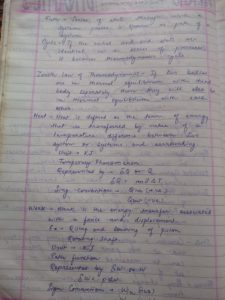 Path - Series of state through which a
system passes is known as path of
system.
Cycle - If the initial and end state are
identical, in a series of processes,
it becomes thermodynamics cycle
Zeroth Law of Thermodynamics - If two bodies
are in thermal equilibrium with third
body separately then they will also be
in thermal equilibrium with each
other.
Heat - Heat is defined as the form of energy
that is transferred by virtue of a
temperature difference between two
system or systems and surrounding
Unit → KJ
Temporary Phenomenon
Represented by → δQ or Q
δQ = m c ΔT
Sign Convention → Qin (+ve)
Qout (-ve)
Work → Work is the energy transfer associated
with a force and displacement.
Ex → Rising and lowering of piston
Rotating shaft.
Unit → KJ
Path function
Represented by δW or W
δW = pdv
Sign Convention → Win (-ve)